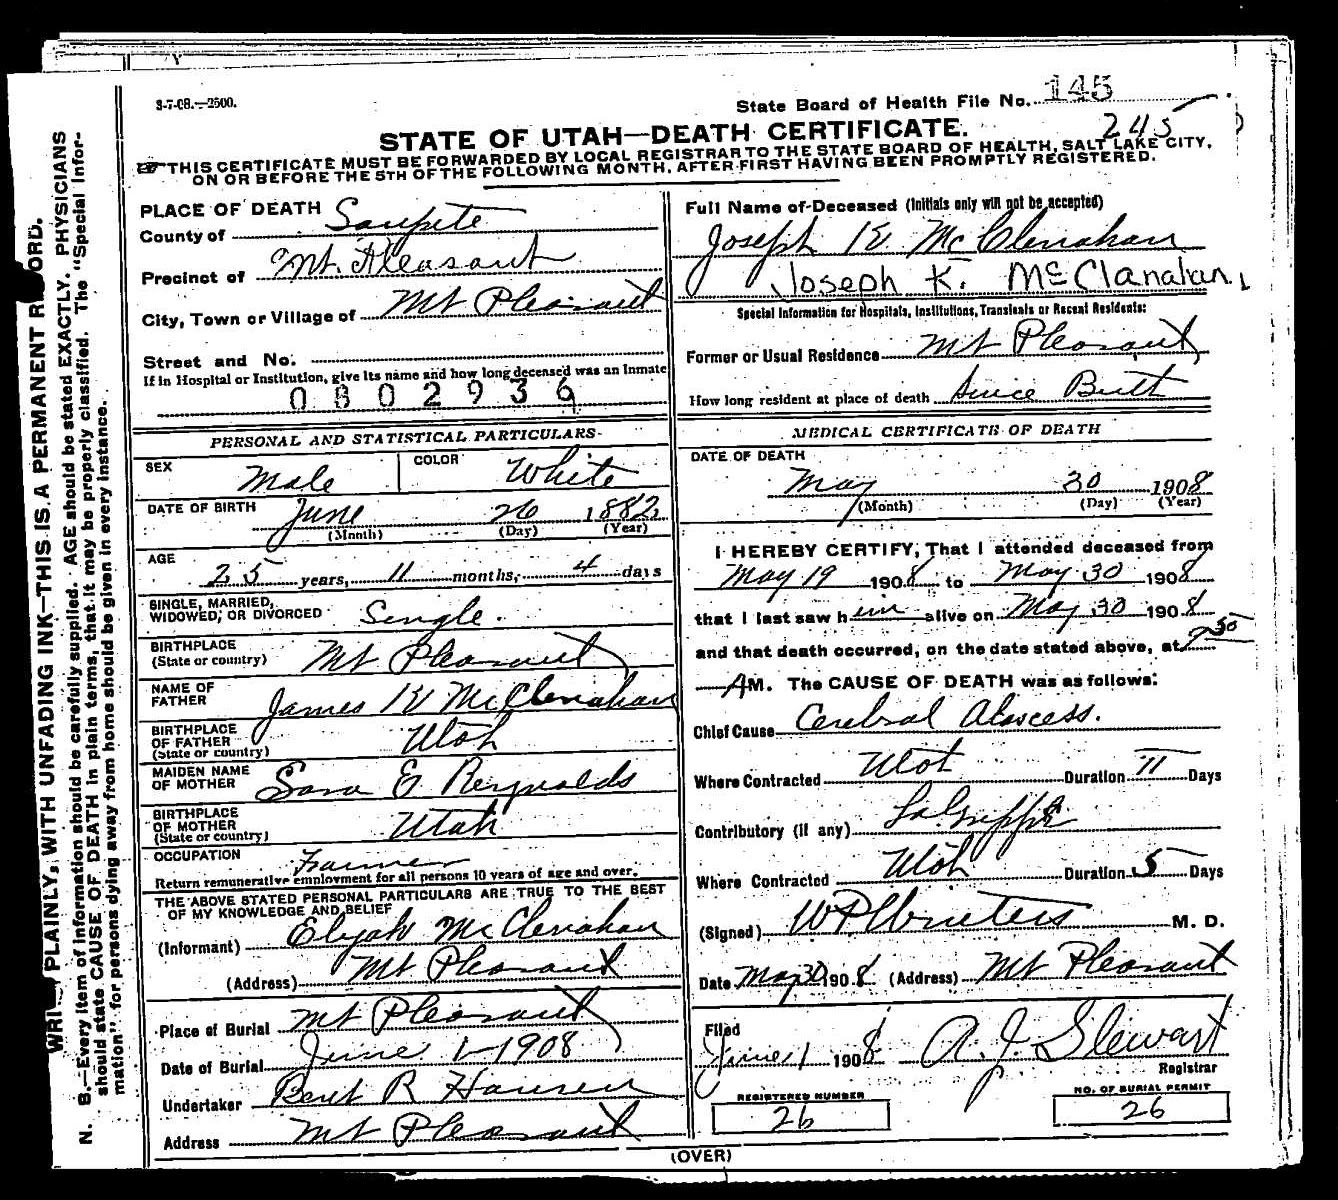 S-7-08.—2500.
State Board of Health File No. 145
245
STATE OF UTAH—DEATH CERTIFICATE.
THIS CERTIFICATE MUST BE FORWARDED BY LOCAL REGISTRAR TO THE STATE BOARD OF HEALTH, SALT LAKE CITY,
ON OR BEFORE THE 5TH OF THE FOLLOWING MONTH, AFTER FIRST HAVING BEEN PROMPTLY REGISTERED.
PLACE OF DEATH
County of Sanpete
Precinct of Mt. Pleasant
City, Town or Village of Mt Pleasant
Street and No.
If in Hospital or Institution, give its name and how long deceased was an Inmate
0802936
PERSONAL AND STATISTICAL PARTICULARS
SEX Male COLOR White
DATE OF BIRTH June 26 1882
(Month) (Day) (Year)
AGE 25 years, 11 months, 4 days
SINGLE, MARRIED,
WIDOWED, OR DIVORCED Single.
BIRTHPLACE
(State or country) Mt Pleasant
NAME OF
FATHER James K McClenahan
BIRTHPLACE
OF FATHER
(State or country) Utah
MAIDEN NAME
OF MOTHER Sara E Reynolds
BIRTHPLACE
OF MOTHER
(State or country) Utah
OCCUPATION Farmer
Return remunerative employment for all persons 10 years of age and over.
THE ABOVE STATED PERSONAL PARTICULARS ARE TRUE TO THE BEST
OF MY KNOWLEDGE AND BELIEF
(Informant) Elijah McClenahan
(Address) Mt Pleasant
Place of Burial Mt Pleasant
Date of Burial June 1-1908
Undertaker Bent R Hansen
Address Mt Pleasant
Full Name of Deceased (Initials only will not be accepted)
Joseph K McClenahan
Joseph K. McClanahan
Special Information for Hospitals, Institutions, Transients or Recent Residents:
Former or Usual Residence Mt Pleasant
How long resident at place of death Since Birth
MEDICAL CERTIFICATE OF DEATH
DATE OF DEATH
May 30 1908
(Month) (Day) (Year)
I HEREBY CERTIFY, That I attended deceased from
May 19 1908 to May 30 1908
that I last saw him alive on May 30 1908
and that death occurred, on the date stated above, at 7 30
AM. The CAUSE OF DEATH was as follows:
Chief Cause Cerebral Abscess.
Where Contracted Utah Duration 11 Days
Contributory (if any) La Grippe
Where Contracted Utah Duration 5 Days
(Signed) M. D.
Date May 30 1908 (Address) Mt Pleasant
Filed
June 1 1908 A. J. Stewart
Registrar
REGISTERED NUMBER
26
NO. OF BURIAL PERMIT
26
(OVER)
WRITE PLAINLY, WITH UNFADING INK—THIS IS A PERMANENT RECORD.
N. B.—Every item of information should be carefully supplied. AGE should be stated EXACTLY. PHYSICIANS
should state CAUSE OF DEATH in plain terms, that it may be properly classified. The "Special Infor-
mation" for persons dying away from home should be given in every instance.